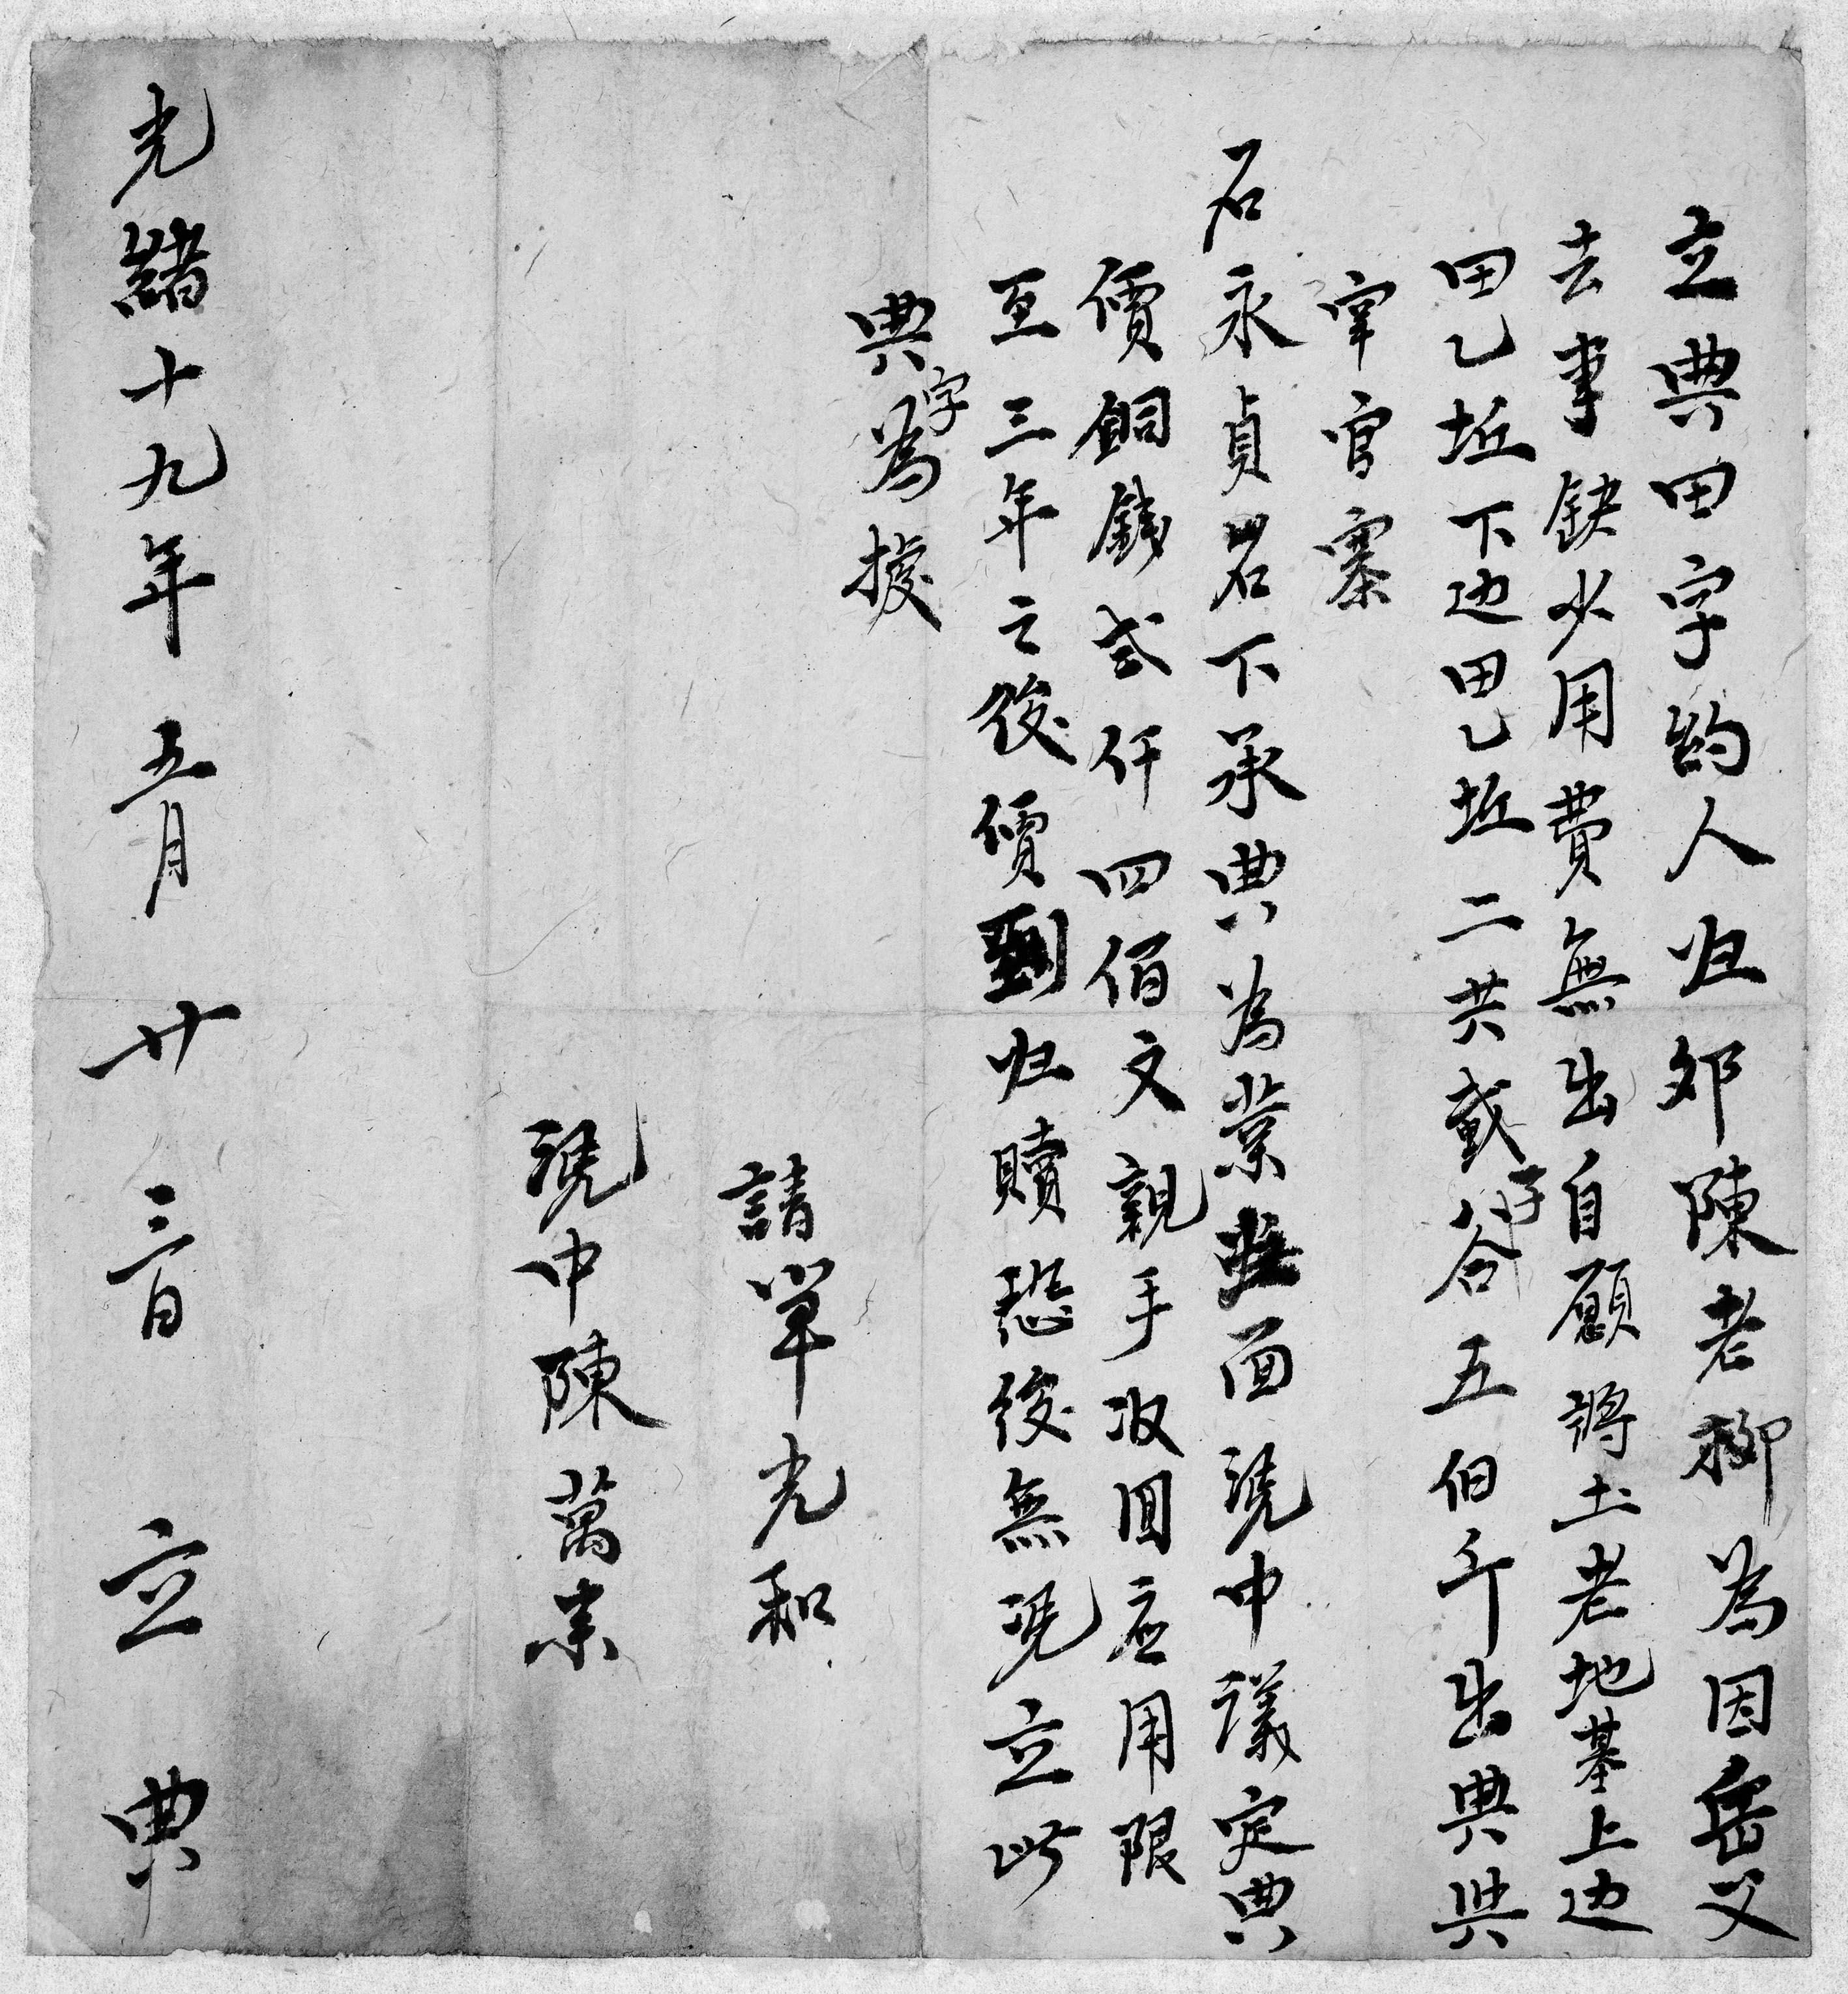 立典田字約人归邜陳老柳為因岳父
去事缺少用費無出自願將土老地基上边
田乙坵下边田乙坵二共載谷子五伯斤出典與
宰官寨
石永貞名下承典為業当面凴中議定典
價銅錢弍仟四佰文親手收囬應用限
至三年之後價到归贖恐後無凴立此
典字為據
請單光和
凴中陳萬末
光緒十九年五月廿三日立典